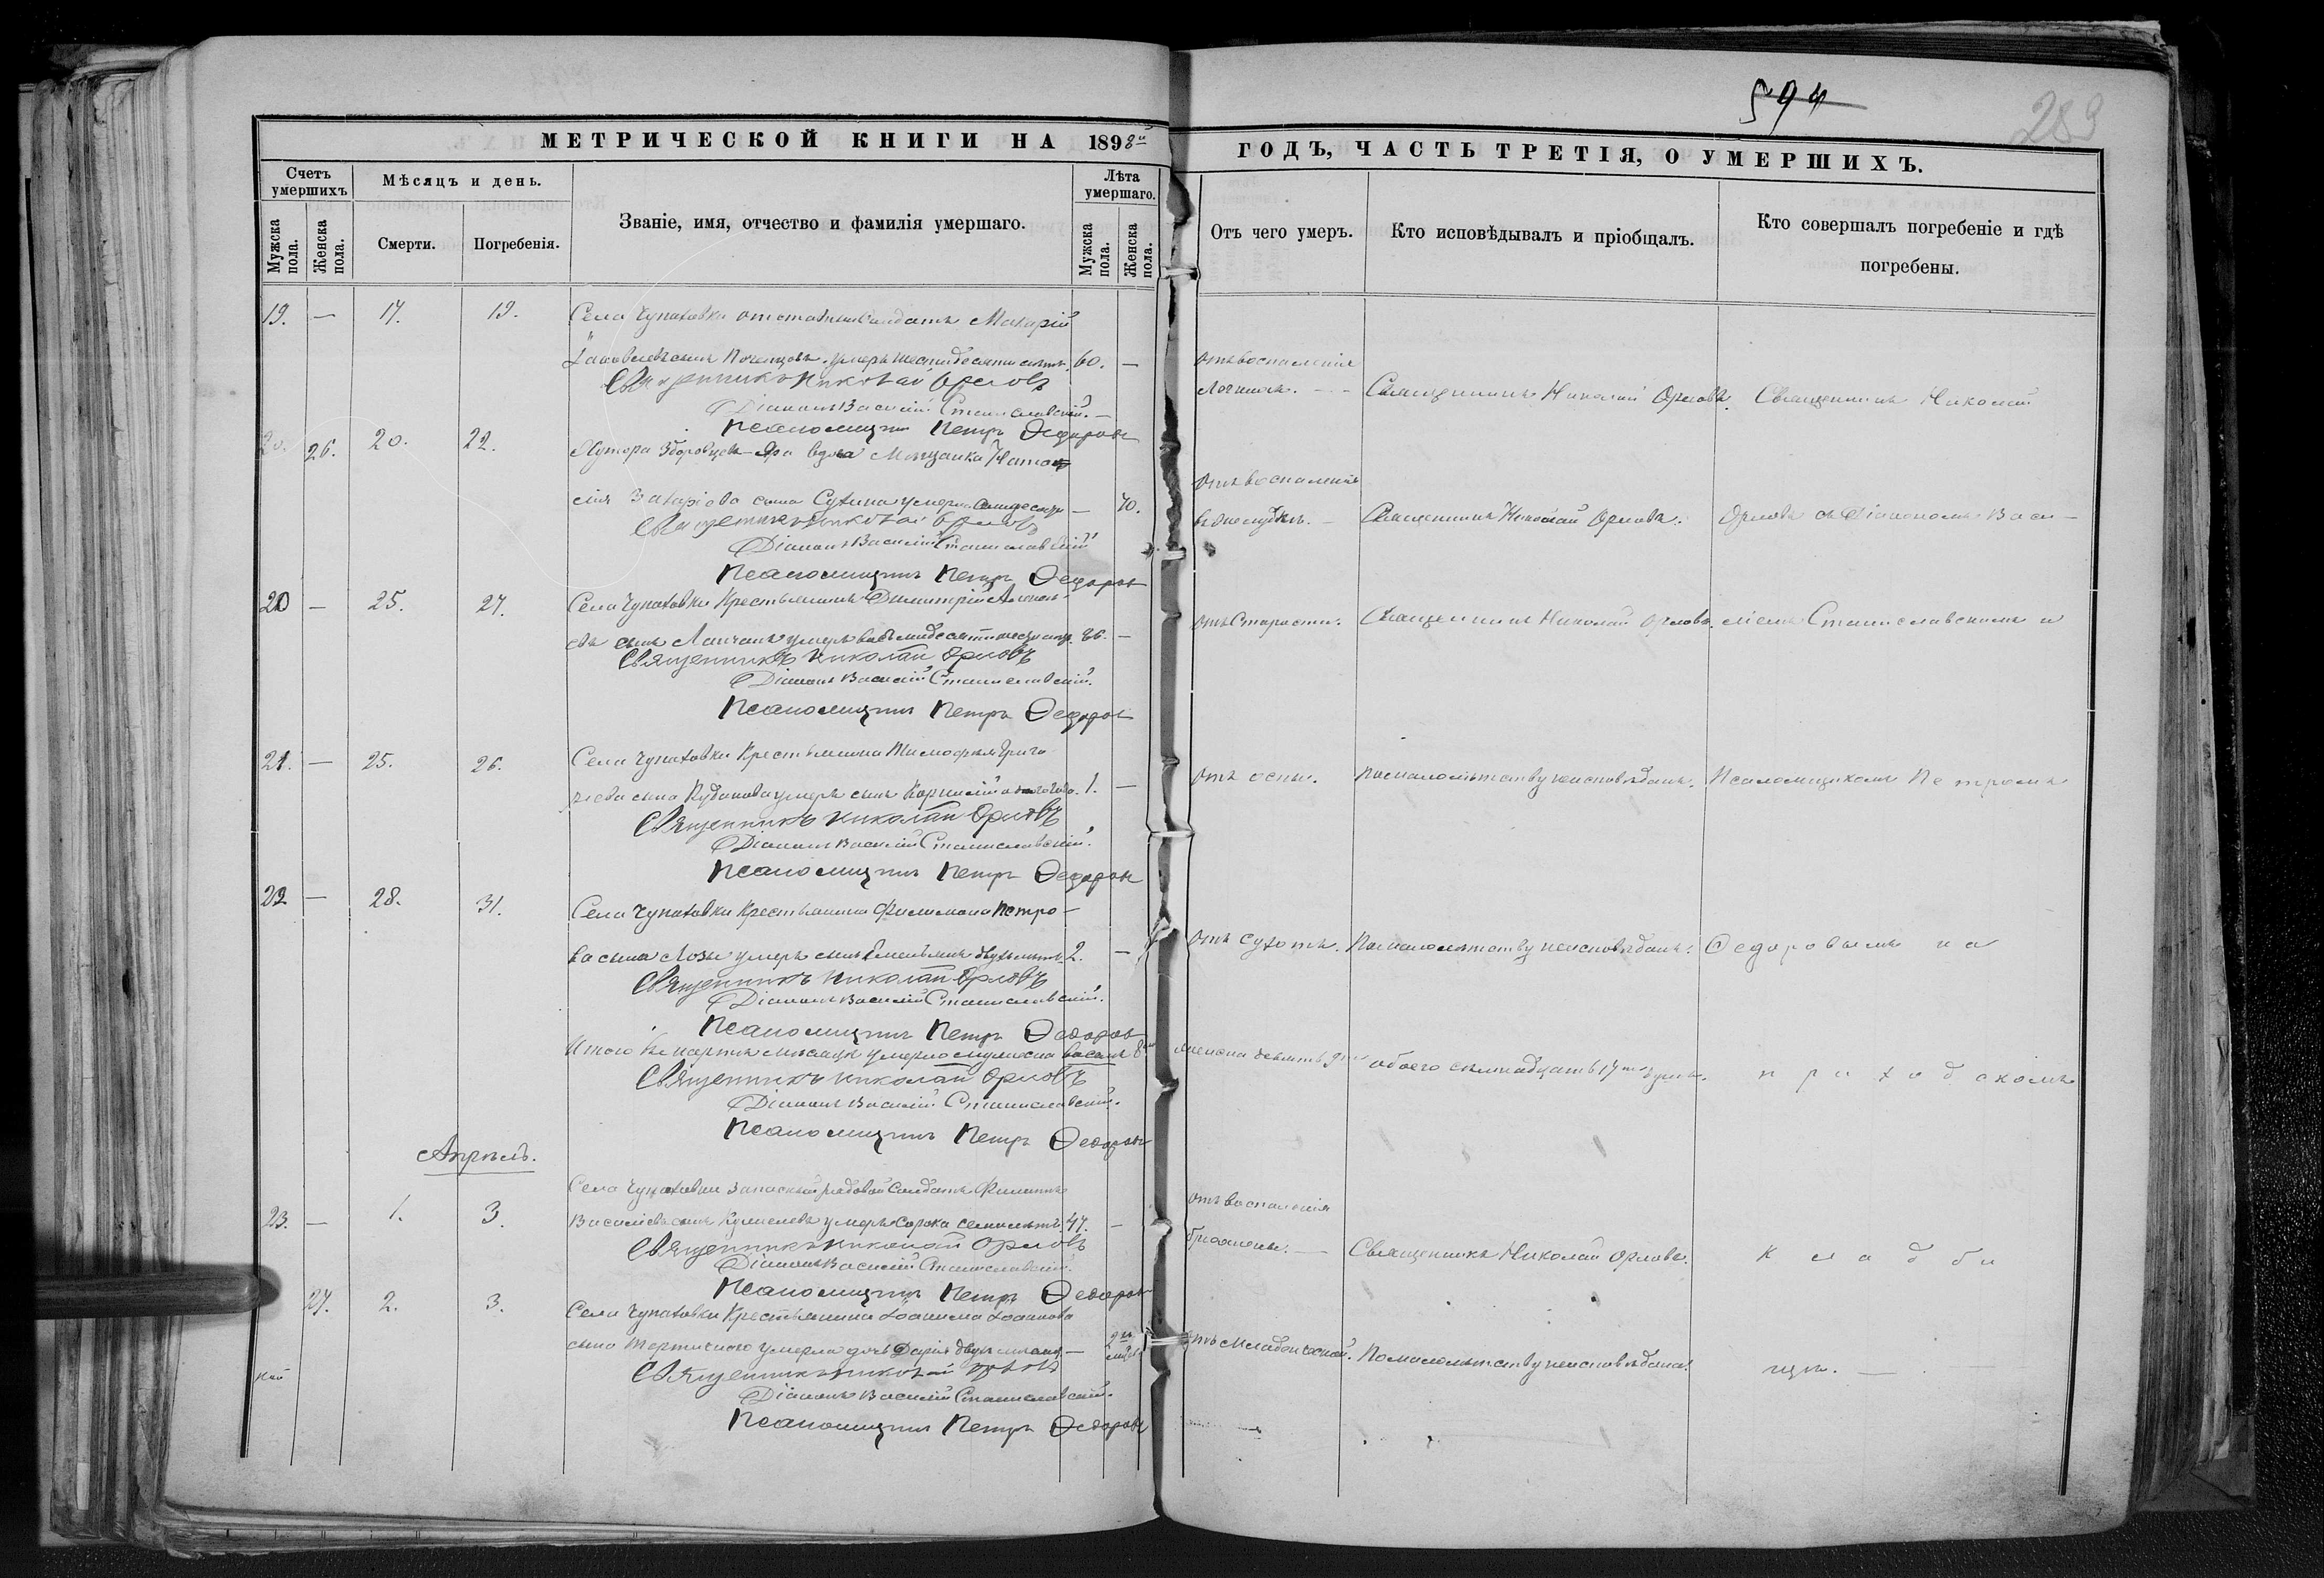 594
289
МЕТРИЧЕСКОЙ КНИГИ НА 1898й
ГОДЪ, ЧАСТЬ ТРЕТІЯ, О УМЕРШИХЪ.
Счетъ умершихъ
Мѣсяцъ и день.
Званіе, имя, отчество и фамилія умершаго.
Лѣта умершаго.
Мужска пола.
Женска пола.
Смерти.
Погребенія.
Мужска пола.
Женска пола.
Отъ чего умеръ.
Кто исповѣдывалъ и пріобщалъ.
Кто совершалъ погребеніе и гдѣ
погребены.
19. — 17. 19. Села Чупаховки отставный солдатъ Макарій
Іаковлевъ сынъ умеръ шестидесяти лѣтъ. 60. — отъ воспаленія
легкихъ. — Священникъ Николай Орловъ. Священникъ Николай
Священникъ Николай Орловъ
Діаконъ Василій Станиславскій. —
Псаломщикъ Петръ Ѳедоровъ
26. 20. 22. Хутора вдова Мѣщанка Ната
лія Захаріова Сухина умерла семидесяти — 70. отъ воспаленія
въ желудкѣ. — Священникъ Николай Орловъ. Орловъ съ Діакономъ Васи—
Священникъ Николай Орловъ
Діаконъ Василій Станиславскій
Псаломщикъ Петръ Ѳедоровъ
20 — 25. 27. Села Чупаховки Крестьянинъ Димитрій
въ сынъ умеръ восьмидесяти шести 86. — отъ Старости. Священникъ Николай Орловъ. ліемъ Станиславскимъ и
Священникъ Николай Орловъ
Діаконъ Василій Станиславскій.
Псаломщикъ Петръ Ѳедоровъ
21. — 25. 26. Села Чупаховки Крестьянина Тимофея Григо
ріева сына умеръ сынъ Корнилій одного года. 1. — отъ оспы. по малолѣтству неисповѣданъ. Псаломщикомъ Петромъ
Священникъ Николай Орловъ
Діаконъ Василій Станиславскій.
Псаломщикъ Петръ Ѳедоровъ
22 — 28. 31. Села Чупаховки Крестьянина Филимона Петро—
ва сына Лозы умеръ сынъ Емельянъ двухъ лѣтъ 2. — отъ сухотъ. По малолѣтству неисповѣданъ. Ѳедоровымъ на
Священникъ Николай Орловъ
Діаконъ Василій Станиславскій.
Псаломщикъ Петръ Ѳедоровъ
Итого въ мартѣ мѣсяцѣ умерло мужеска восемь 8 женска девять 9 обоего семнадцать 17 душъ. приходскомъ
Священникъ Николай Орловъ
Діаконъ Василій Станиславскій.
Псаломщикъ Петръ Ѳедоровъ
Апрѣль.
Села Чупаховки запасный рядовой солдатъ Филиппъ
23. — 1. 3. Василіевъ сынъ умеръ сорока семи лѣтъ. 47. — отъ воспаленія
брюшины. — Священникъ Николай Орловъ. кладби
Священникъ Николай Орловъ
Діаконъ Василій Станиславскій.
Псаломщикъ Петръ Ѳедоровъ
27. 2. 3. Села Чупаховки Крестьянина Іоакима Іоаннова
сына умерла дочь Дарія двухъ мѣсяц. — 2хъ мѣс. отъ младенческой. По малолѣтству неисповѣдана. щѣ. —
Священникъ Николай Орловъ
Діаконъ Василій Станиславскій.
Псаломщикъ Петръ Ѳедоровъ